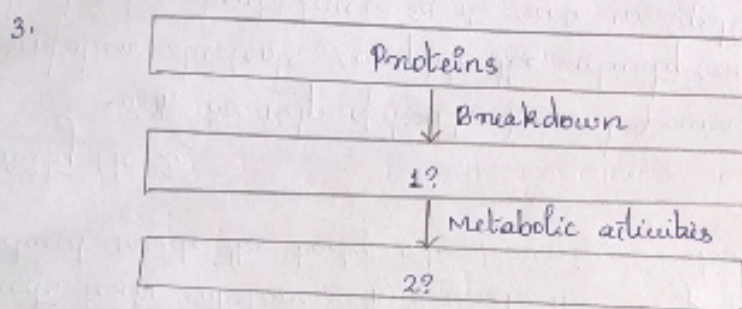 3.
Proteins
Breakdown
1?
Metabolic activities
2?